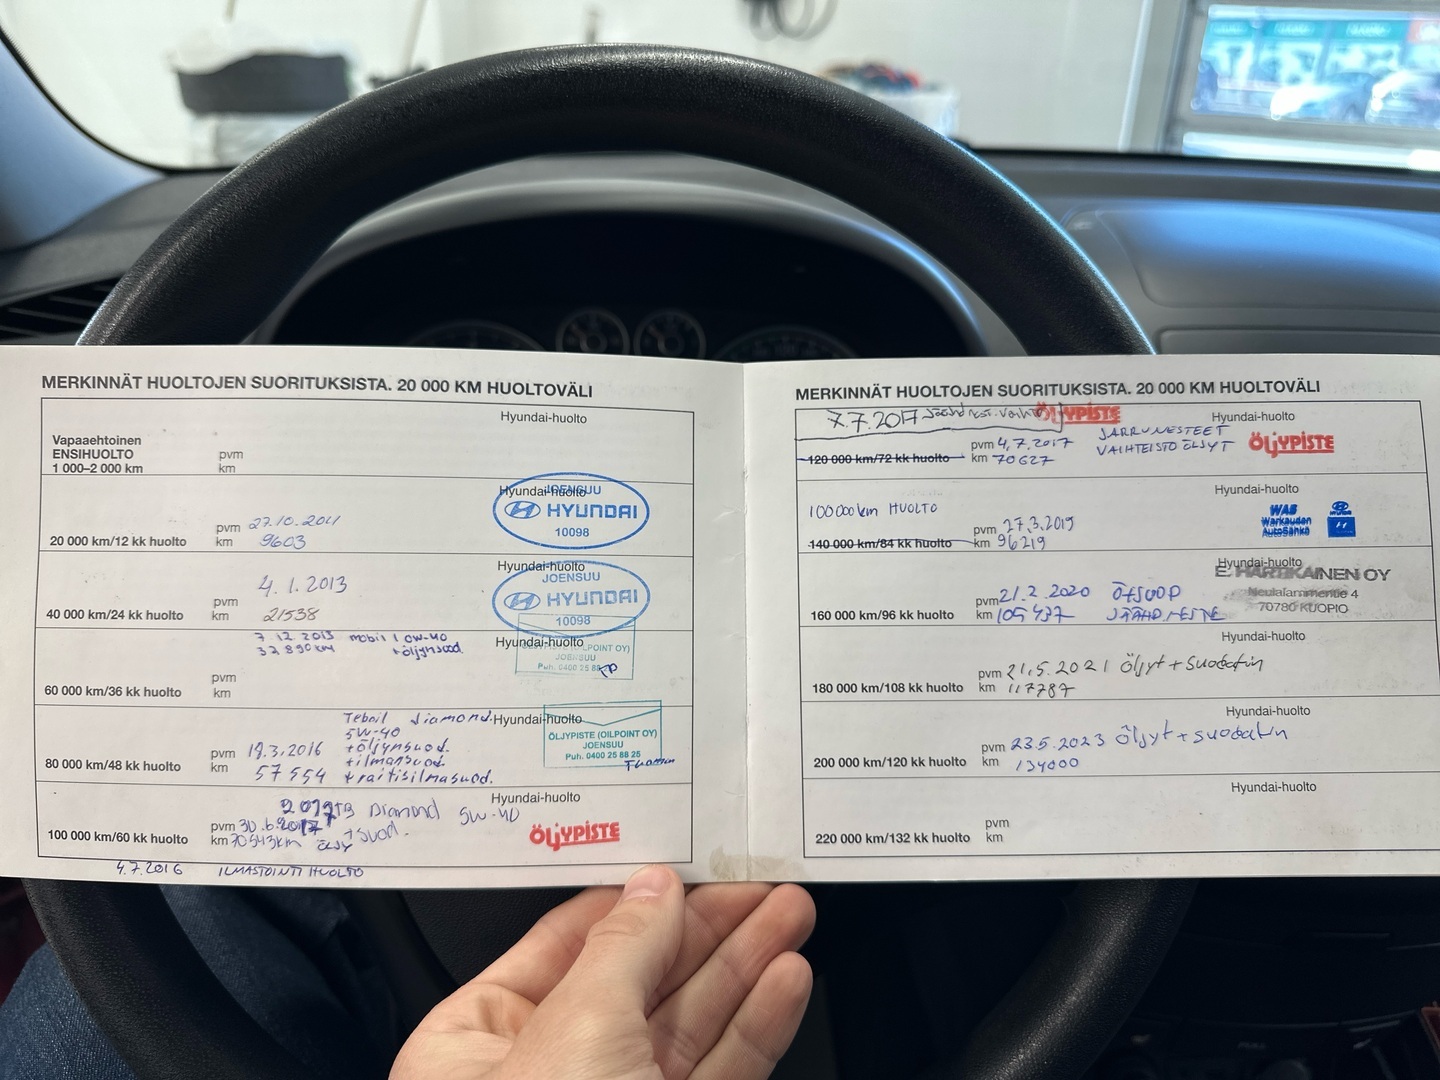 MERKINNÄT HUOLTOJEN SUORITUKSISTA. 20 000 KM HUOLTOVÄLI
Hyundai-huolto
Vapaaehtoinen
ENSIHUOLTO
1 000–2 000 km
pvm
km
Hyundai-huolto
JOENSUU
HYUNDAI
10098
20 000 km/12 kk huolto
pvm 27.10.2011
km 9603
Hyundai-huolto
JOENSUU
HYUNDAI
10098
4.1.2013
40 000 km/24 kk huolto
pvm
km 21538
7.12.2013 mobil 1 0W-40
32890km +öljynsuod.
Hyundai-huolto
JOENSUU
Puh. 0400 25 88
60 000 km/36 kk huolto
pvm
km
Teboil diamond
5W-40
+öljynsuod.
+ilmansuod.
+raitisilmasuod.
Hyundai-huolto
ÖLJYPISTE (OILPOINT OY)
JOENSUU
Puh. 0400 25 88 25
80 000 km/48 kk huolto
pvm 19.3.2016
km 57554
Hyundai-huolto
Diamond 5W-40
100 000 km/60 kk huolto
pvm 30.6.2017
km 70543km
+suod.
ÖLJYPISTE
4.7.2016 ILMASTOINTI HUOLTO
MERKINNÄT HUOLTOJEN SUORITUKSISTA. 20 000 KM HUOLTOVÄLI
7.7.2017 ÖLJYPISTE
Hyundai-huolto
120 000 km/72 kk huolto
pvm 4.7.2017
km 70627
JARRUNESTEET
VAIHTEISTO ÖLJYT
ÖLJYPISTE
Hyundai-huolto
100000km HUOLTO
140 000 km/84 kk huolto
pvm 27.3.2019
km 96219
WAS
Warkauden
AutoSähkö
Hyundai-huolto
E. HARTIKAINEN OY
Neulalammentie 4
70780 KUOPIO
160 000 km/96 kk huolto
pvm 21.2.2020
km 105437
JÄÄHD.NESTE
Hyundai-huolto
180 000 km/108 kk huolto
pvm 21.5.2021 Öljyt + suodatin
km 117787
Hyundai-huolto
200 000 km/120 kk huolto
pvm 23.5.2023 Öljyt + suodatin
km 134000
Hyundai-huolto
220 000 km/132 kk huolto
pvm
km